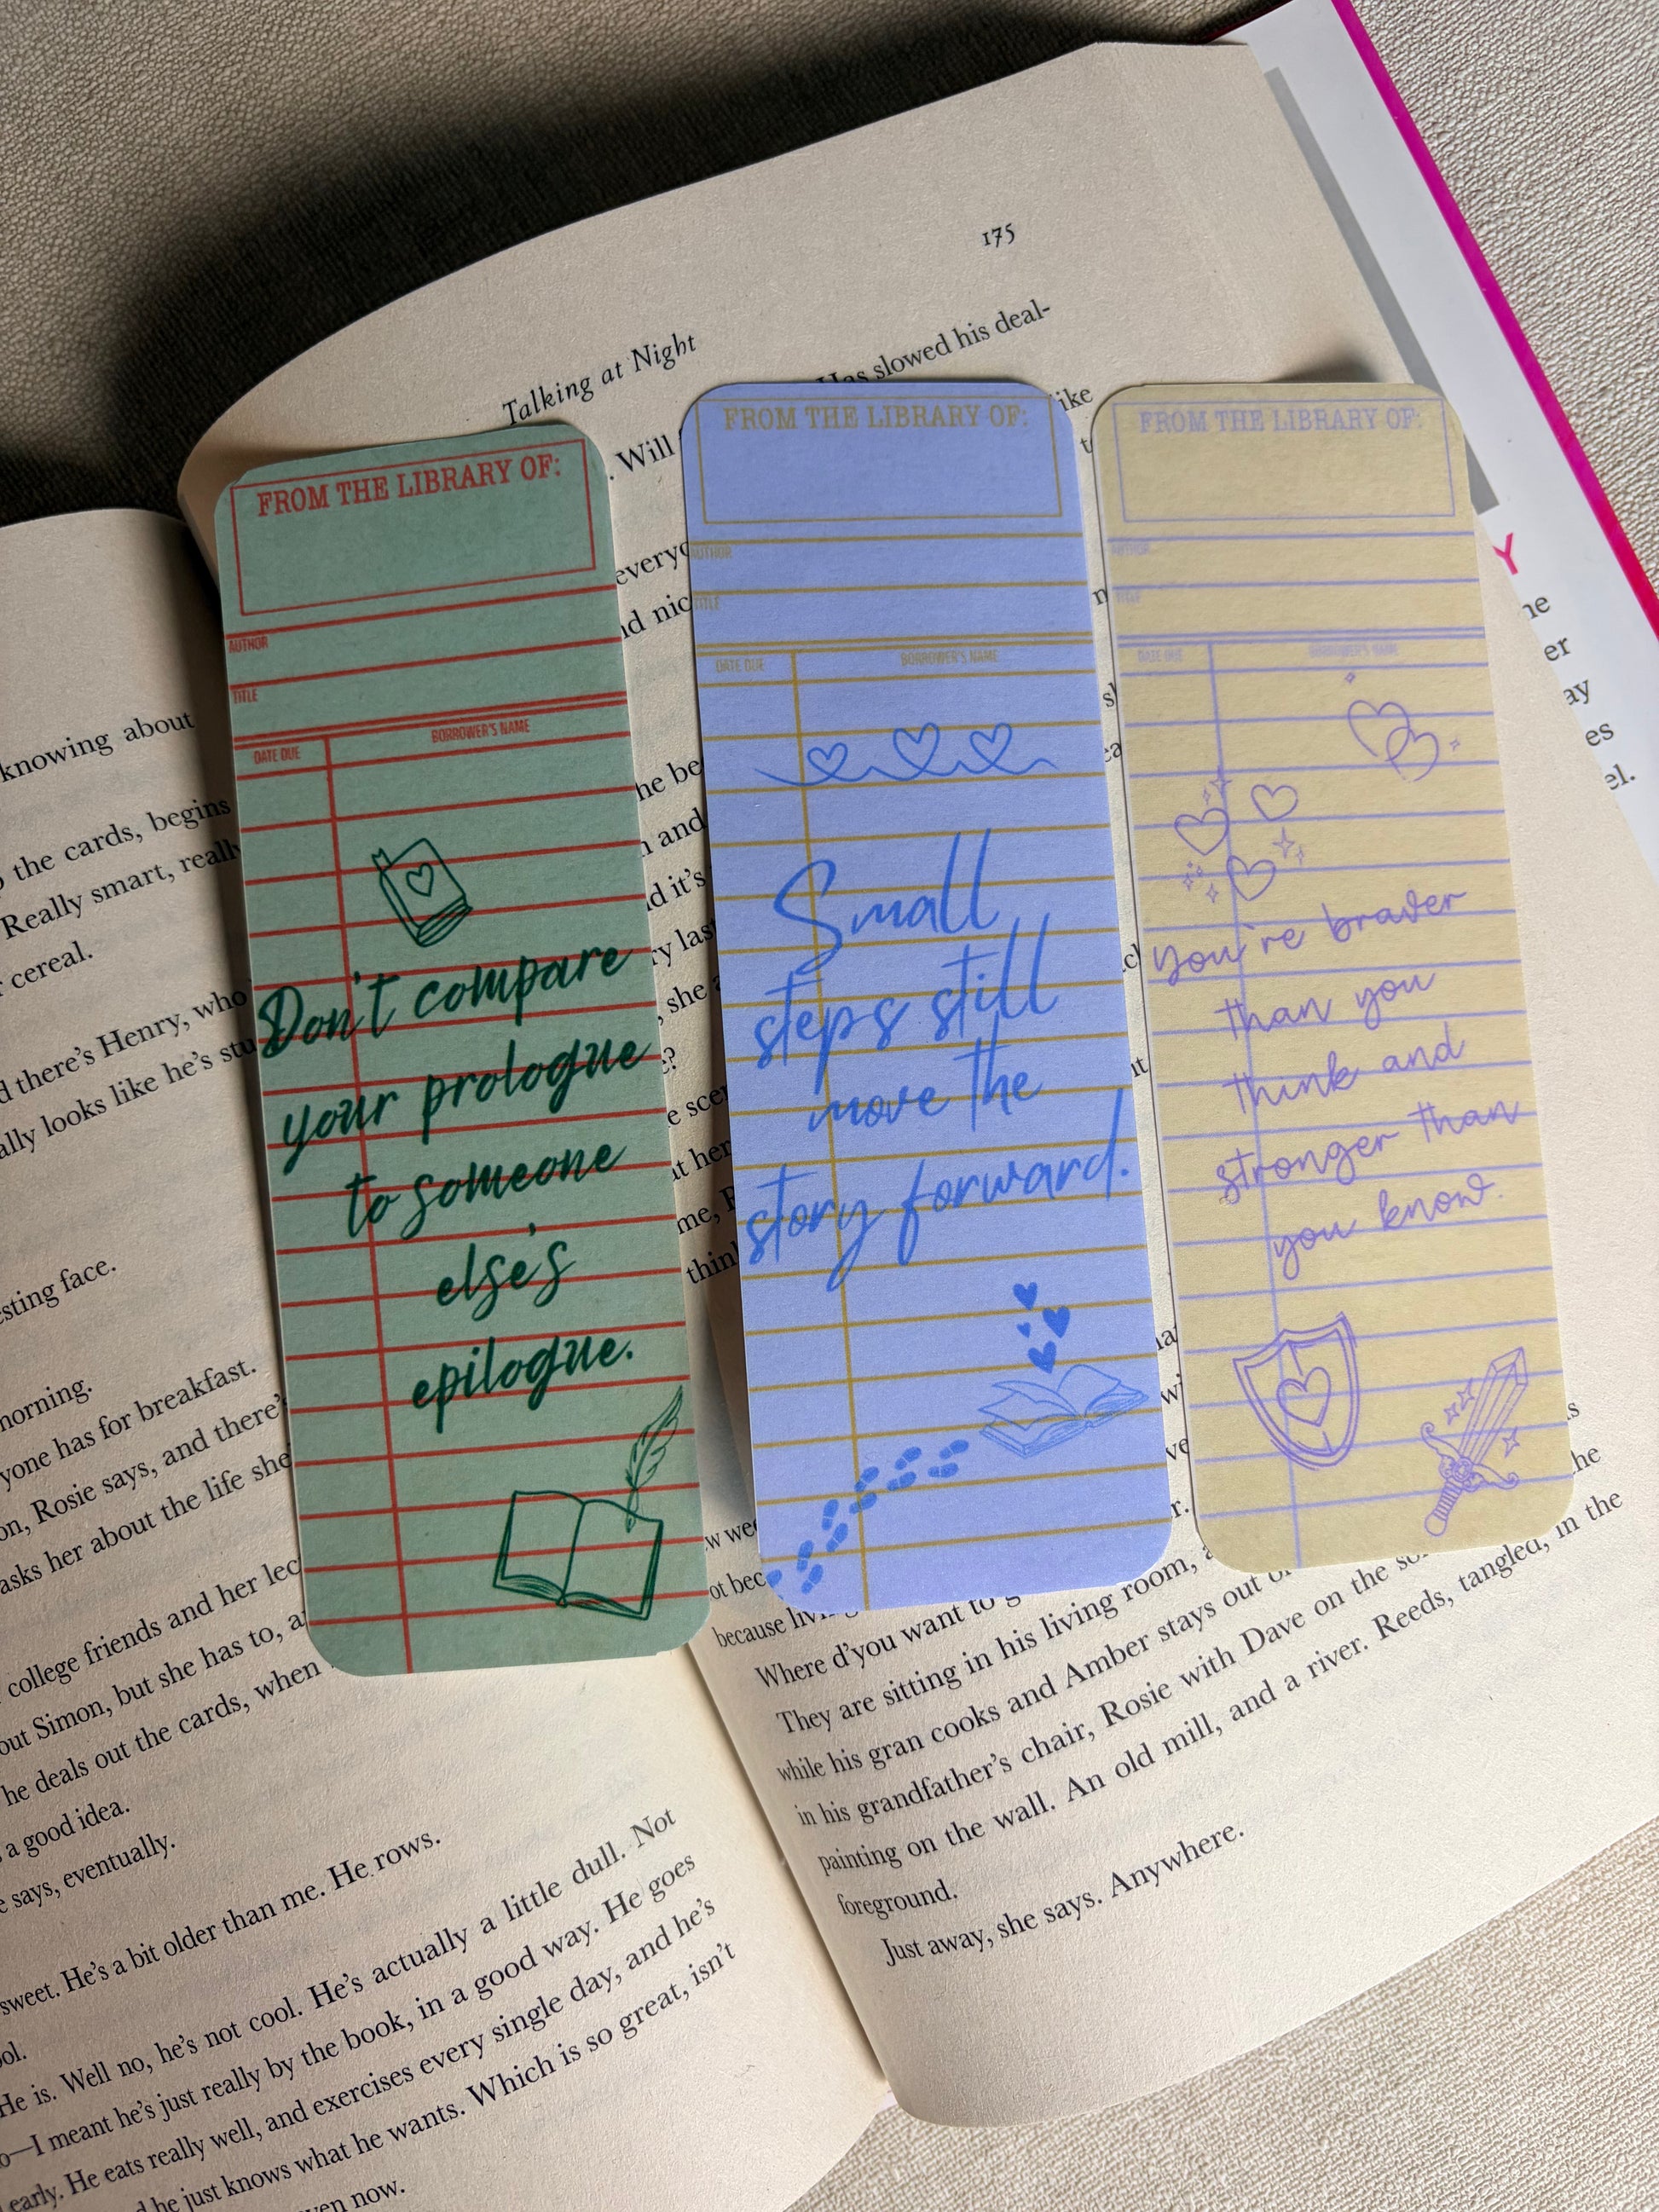 175
Talking at Night
Has slowed his deal-
like
. Will
everyo
nd nic
FROM THE LIBRARY OF:
AUTHOR
TITLE
DATE DUE
BORROWER'S NAME
Don't compare
your prologue
to someone
else's
epilogue.
FROM THE LIBRARY OF:
AUTHOR
TITLE
DATE DUE
BORROWER'S NAME
Small
steps still
move the
story forward.
FROM THE LIBRARY OF:
AUTHOR
TITLE
DATE DUE
BORROWER'S NAME
you're braver
than you
think and
stronger than
you know.
Y
knowing about
the cards, begins
Really smart, really
cereal.
d there's Henry, who
ally looks like he's stu
sting face.
morning.
yone has for breakfast.
on, Rosie says, and there's
asks her about the life she
college friends and her lec
out Simon, but she has to, a
he deals out the cards, when
a good idea.
e says, eventually.
sweet. He's a bit older than me. He rows.
ool.
He is. Well no, he's not cool. He's actually a little dull. Not
o—I meant he's just really by the book, in a good way. He goes
early. He eats really well, and exercises every single day, and he's
d he just knows what he wants. Which is so great, isn't
ven now.
he be
n and
d it's
ry las
, she
e?
e scen
at her
me, F
thin
w wee
ot bec
because
Where d'you want to g
They are sitting in his living room,
while his gran cooks and Amber stays out
in his grandfather's chair, Rosie with Dave on the
painting on the wall. An old mill, and a river. Reeds, tangled, in the
foreground.
Just away, she says. Anywhere.
ne
er
ay
es
el.